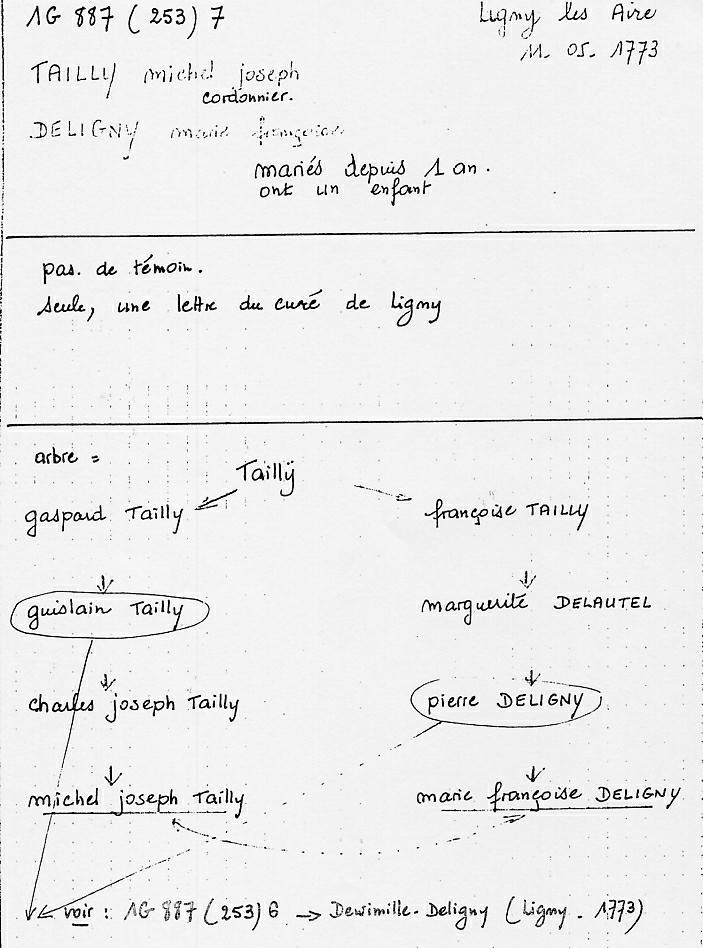 1G 887 (253) 7
Ligny les Aire
11. 05. 1773
TAILLY michel joseph
cordonnier.
DELIGNY marie françoise
mariés depuis 1 an.
ont un enfant
pas. de témoin.
Seule, une lettre du curé de Ligny
arbre =
Tailly
gaspard Tailly
françoise TAILLY
guislain Tailly
marguerite DELAUTEL
charles joseph Tailly
pierre DELIGNY
michel joseph Tailly
marie françoise DELIGNY
voir : 1G 887 (253) 6 → Dewimille-Deligny (Ligny - 1773)